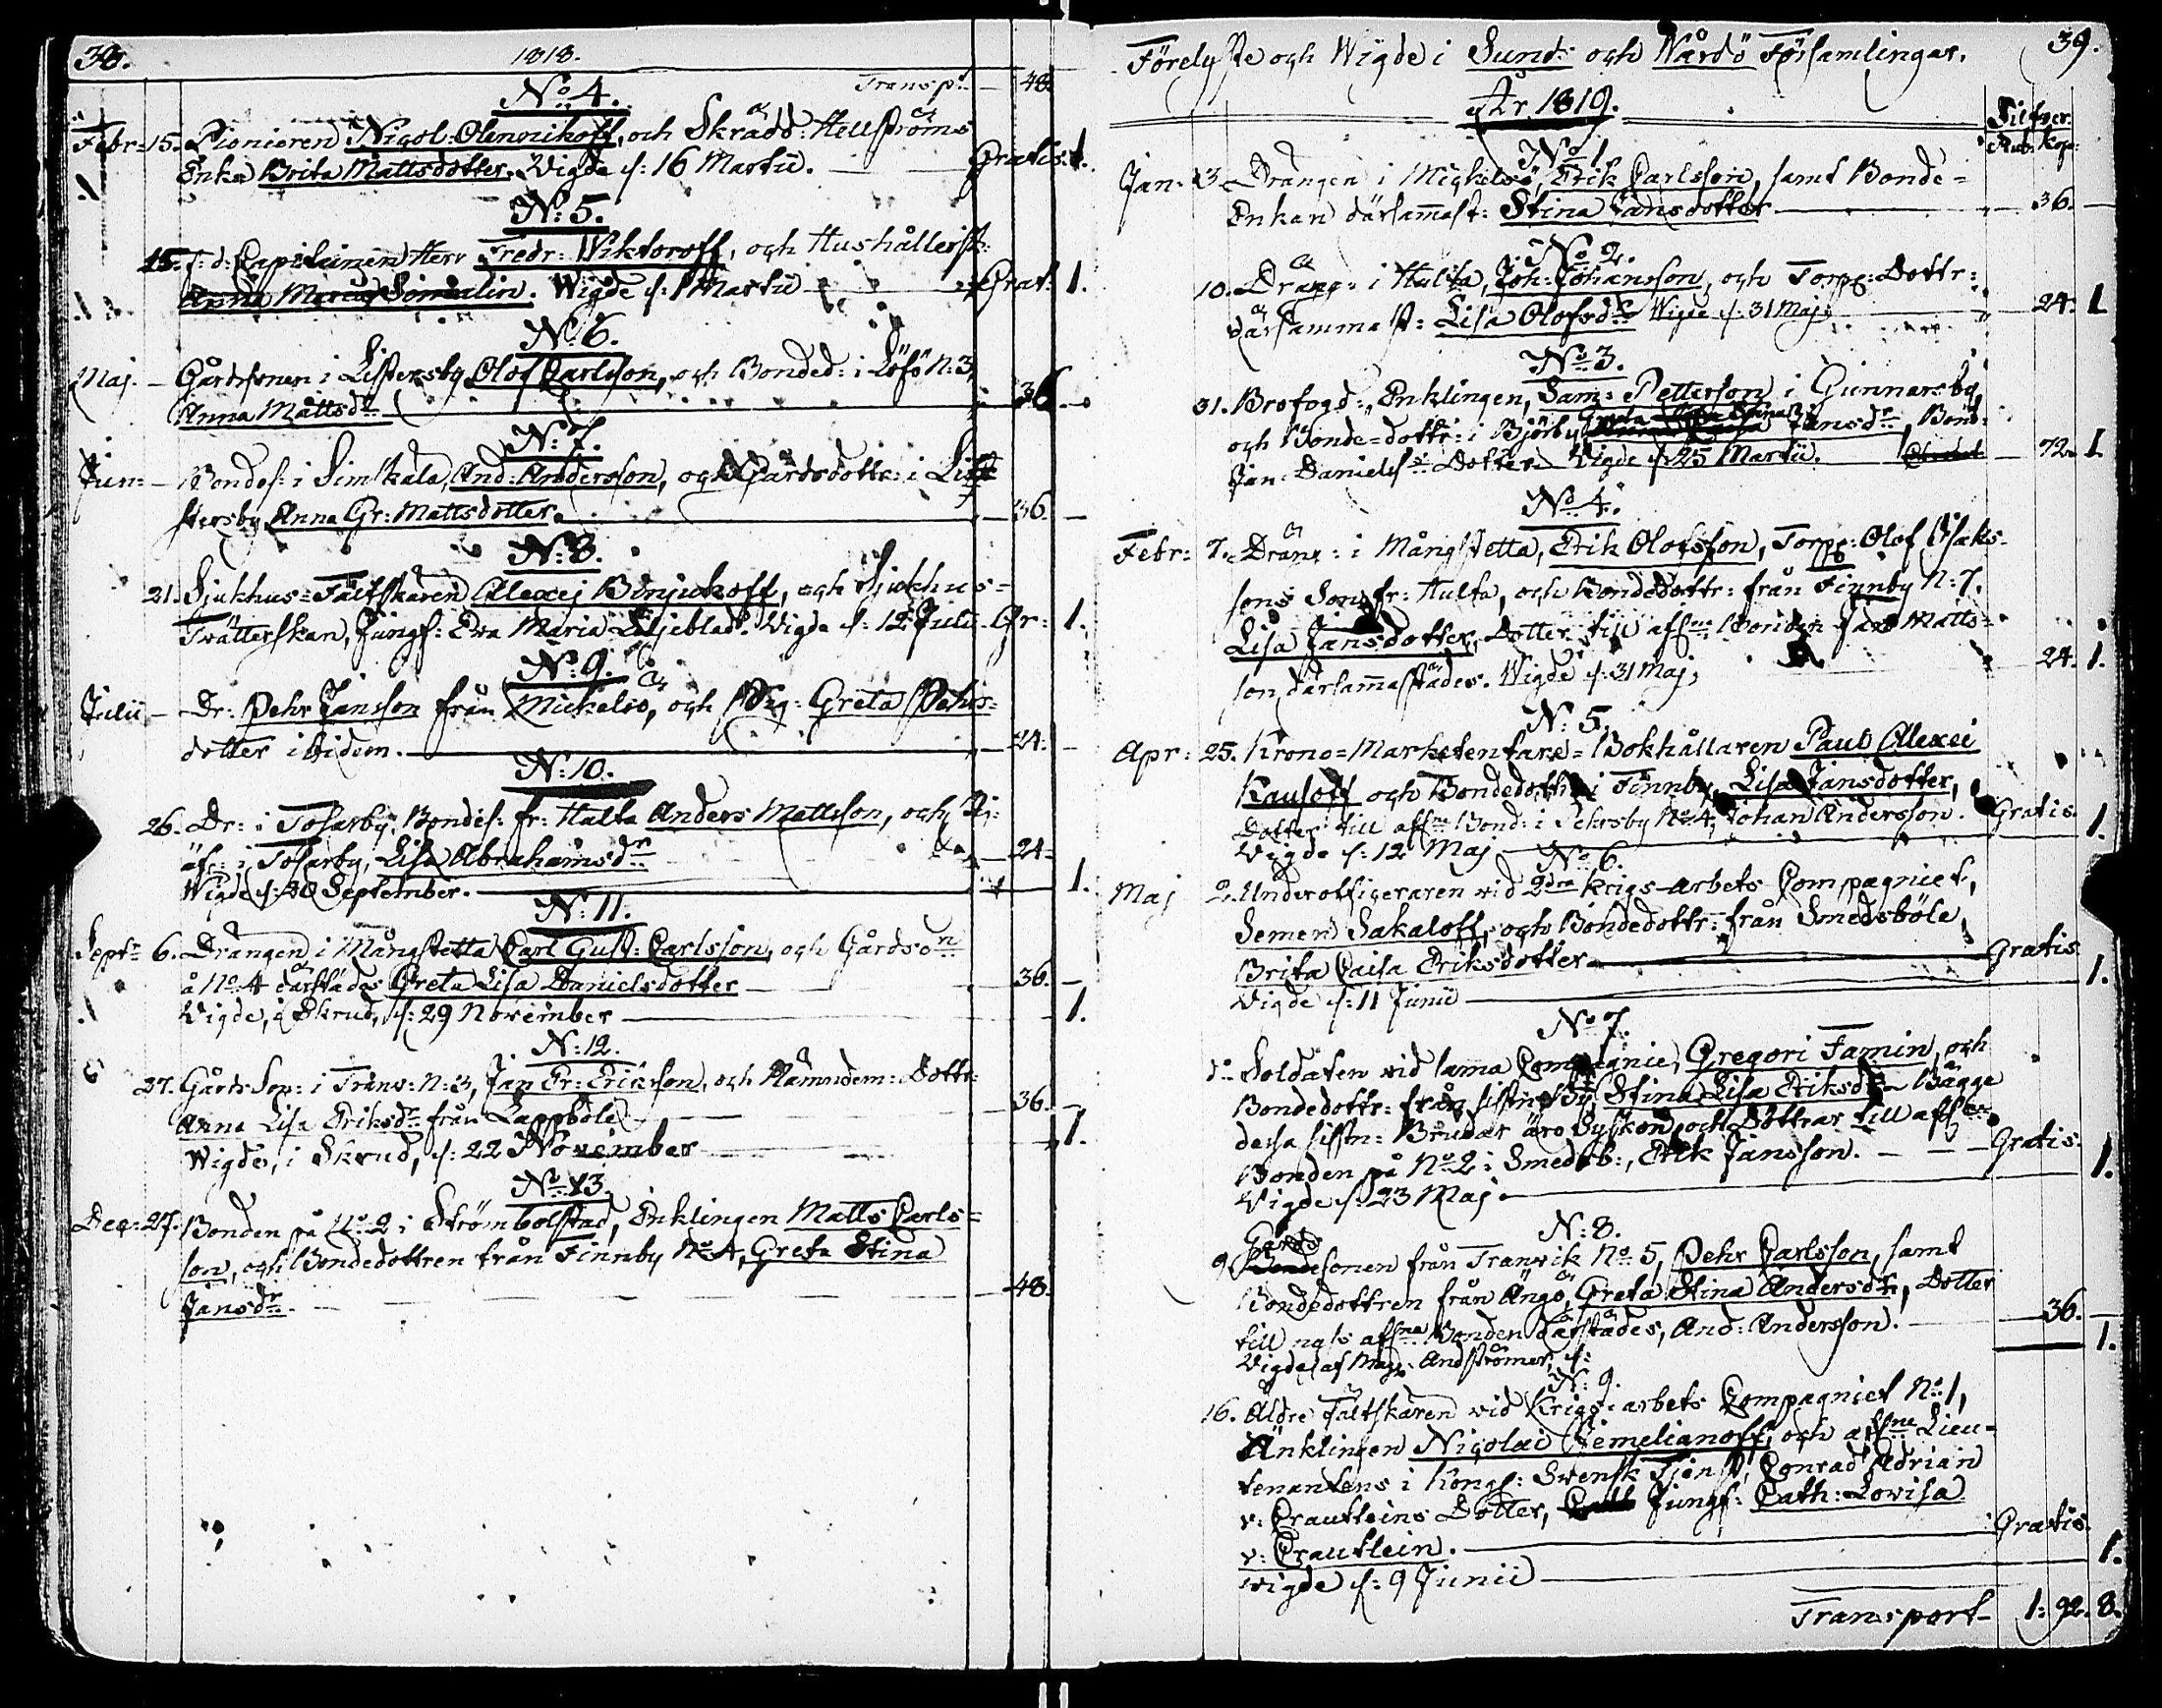 38. 1818.
Transpt — 48.
No. 4.
Febr: 15. Pionieren Nicol: Olennikoff, och Skrädd: Hellströms
Enka Brita Mattsdotter. Vigde d: 16 Martii. — Gratis. 1.
N: 5.
15. Herr Fredr: Wiktoroff, och Hushållerst:
Anna Maria. Wigde d: 1 Martii — Grat: 1.
N: 6.
Maj. — Gårdssonen i Listersby Olof Carlsson, och Bonded: i Löfö N: 3,
Anna Mattsdr — 36 —
N: 7.
Jun: — Bondes: i Simskala, And: Andersson, och Gårdsdottr: i Li-
stersby Anna Gr: Mattsdotter. — 36. —
N: 8.
21. Sjukhus=Fältskären Alexej Binjukoff, och Sjukhus=
Tvätterskan, Jungf: Eva Maria Liljeblad. Vigde d: 12 Julii. Gr: 1.
N: 9.
Julii — Dr: Pehr Jansson från Mickelsö, och Pig: Greta Pehrs=
dotter ibidem. — 24. —
N: 10.
26. Dr: i Tosarby, Bondes: fr: Hulta Anders Mattsson, och Pig:
äfv: i Tosarby, Lisa Abrahamsdr — 24
Wigde d: 20 September. — 1.
N: 11.
Septr 6. Drängen i Mångstetta Carl Gust: Carlsson, och Gårds
å No. 4 därstädes Greta Lisa Danielsdotter — 36. —
Vigde, i Skrud, d: 29 November — 1.
N: 12.
27. Gårds Son: i Tranv: N: 3, Jan Er: Eriksson, och Nämndem: Dottr:
Anna Lisa Eriksdr från Lappböle — 36. —
Wigde, i Skrud, d: 22 November — 1.
No. 13.
Dec: 27. Bonden på No. 2 i Strömbolstad, Enklingen Matts Carls=
son, och Bondedottren från Finnby No 4, Greta Stina
Jansdr. — 48.
Förelyste och Wigde i Sund: och Wårdö Församlingar. 39.
År 1819.
Silfver
Rub: Kop:
No. 1.
Jan: 3. Drängen i Mickelsö, Erik Carlsson, samt Bonde=
Enkan därsammast: Stina Jansdotter — 36. —
No. 2.
10. Dräng: i Hulta, Joh: Johansson, och Torp: Dottr:
därsammast: Lisa Olofsdr Wigde d. 31 Maj, — 24. 1
No. 3.
31. Brofogd:, Enklingen, Sam: Petterson i Gunnarsby,
och Bonde=dottr: i Björby Jansdr, Bond:
Jan Danielss: Dotter Vigde d. 25 Martii. — 72. 1.
No. 4.
Febr: 7. Dräng: i Mångstetta, Erik Olofsson, Torpp: Olof Isaks-
sons Son fr: Hulta, och Bondedottr: från Finnby N: 7.
Lisa Jansdotter, Dotter till afl:ne Bonden Jan Matts=
son, därsammastädes. Wigde d: 31 Maj, — 24. 1.
N: 5.
Apr: 25. Krono=Marketentare=Bokhållaren Paul Alexei
Kausoff och Bondedottr: i Finnby, Lisa Jansdotter,
Dotter till afl:ne Bond: i Pehrsby No. 4, Johan Andersson. Gratis.
Vigde d: 12 Maj — 1.
No. 6.
Maj 2. Underofficeraren vid 2dra Krigs-arbets Compagniet,
Semen Sakaloff, och Bondedottr: från Smedsböle,
Brita Caisa Eriksdotter — Gratis
Vigde d: 11 Junii — 1.
No. 7.
do Soldaten vid sama Compagnie, Gregori Famin, och
Bondedottr: från sistn: By, Stina Lisa Eriksdr — Bägge
dessa sistn: Brudar äro Syskon, och Döttrar till afl:ne
Bonden på No. 2 i Smedsb:, Erik Jansson. — Gratis.
Vigde d: 23 Maj — 1.
N: 8.
Gårds
9. sonen från Tranvik No. 5, Pehr Carlsson, samt
Bondedottren från Ängö, Greta Stina Andersdr, Dotter
till afl:ne Bonden därstädes, And: Andersson. — 36. —
Vigde af Mag: Andströmer, d: — 1.
N: 9.
16. Äldre Fältskären vid Krigs-arbets Compagniet No. 1,
Änklingen Nicolai Jemelianoff, och afl:ne Lieu=
tenantens i Kongl: Svensk Tjenst, Conrad Adrian
v: Crautleins Dotter, Jungf: Cath: Lovisa
v: Crautlein. — Gratis.
Wigde d: 9 Junii — 1.
Transport 1: 92. 8.